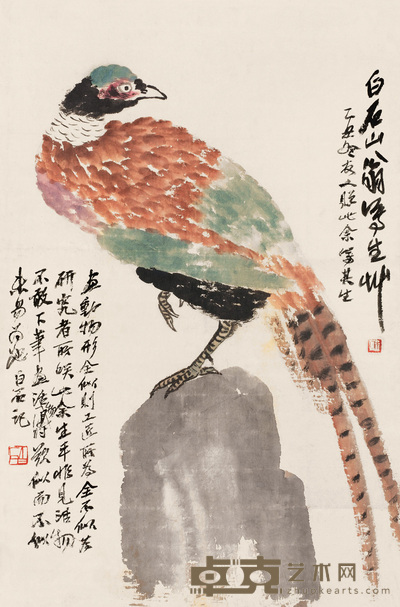 白石山翁写生艸
丁丑冬友人赠此余写其生
画动物形全似则工匠所为全不似为
研究者所笑余生平非见活物
不敢下笔画活时欲似而不似
未易前 白石记
卓克艺术网
zhuokearts.com